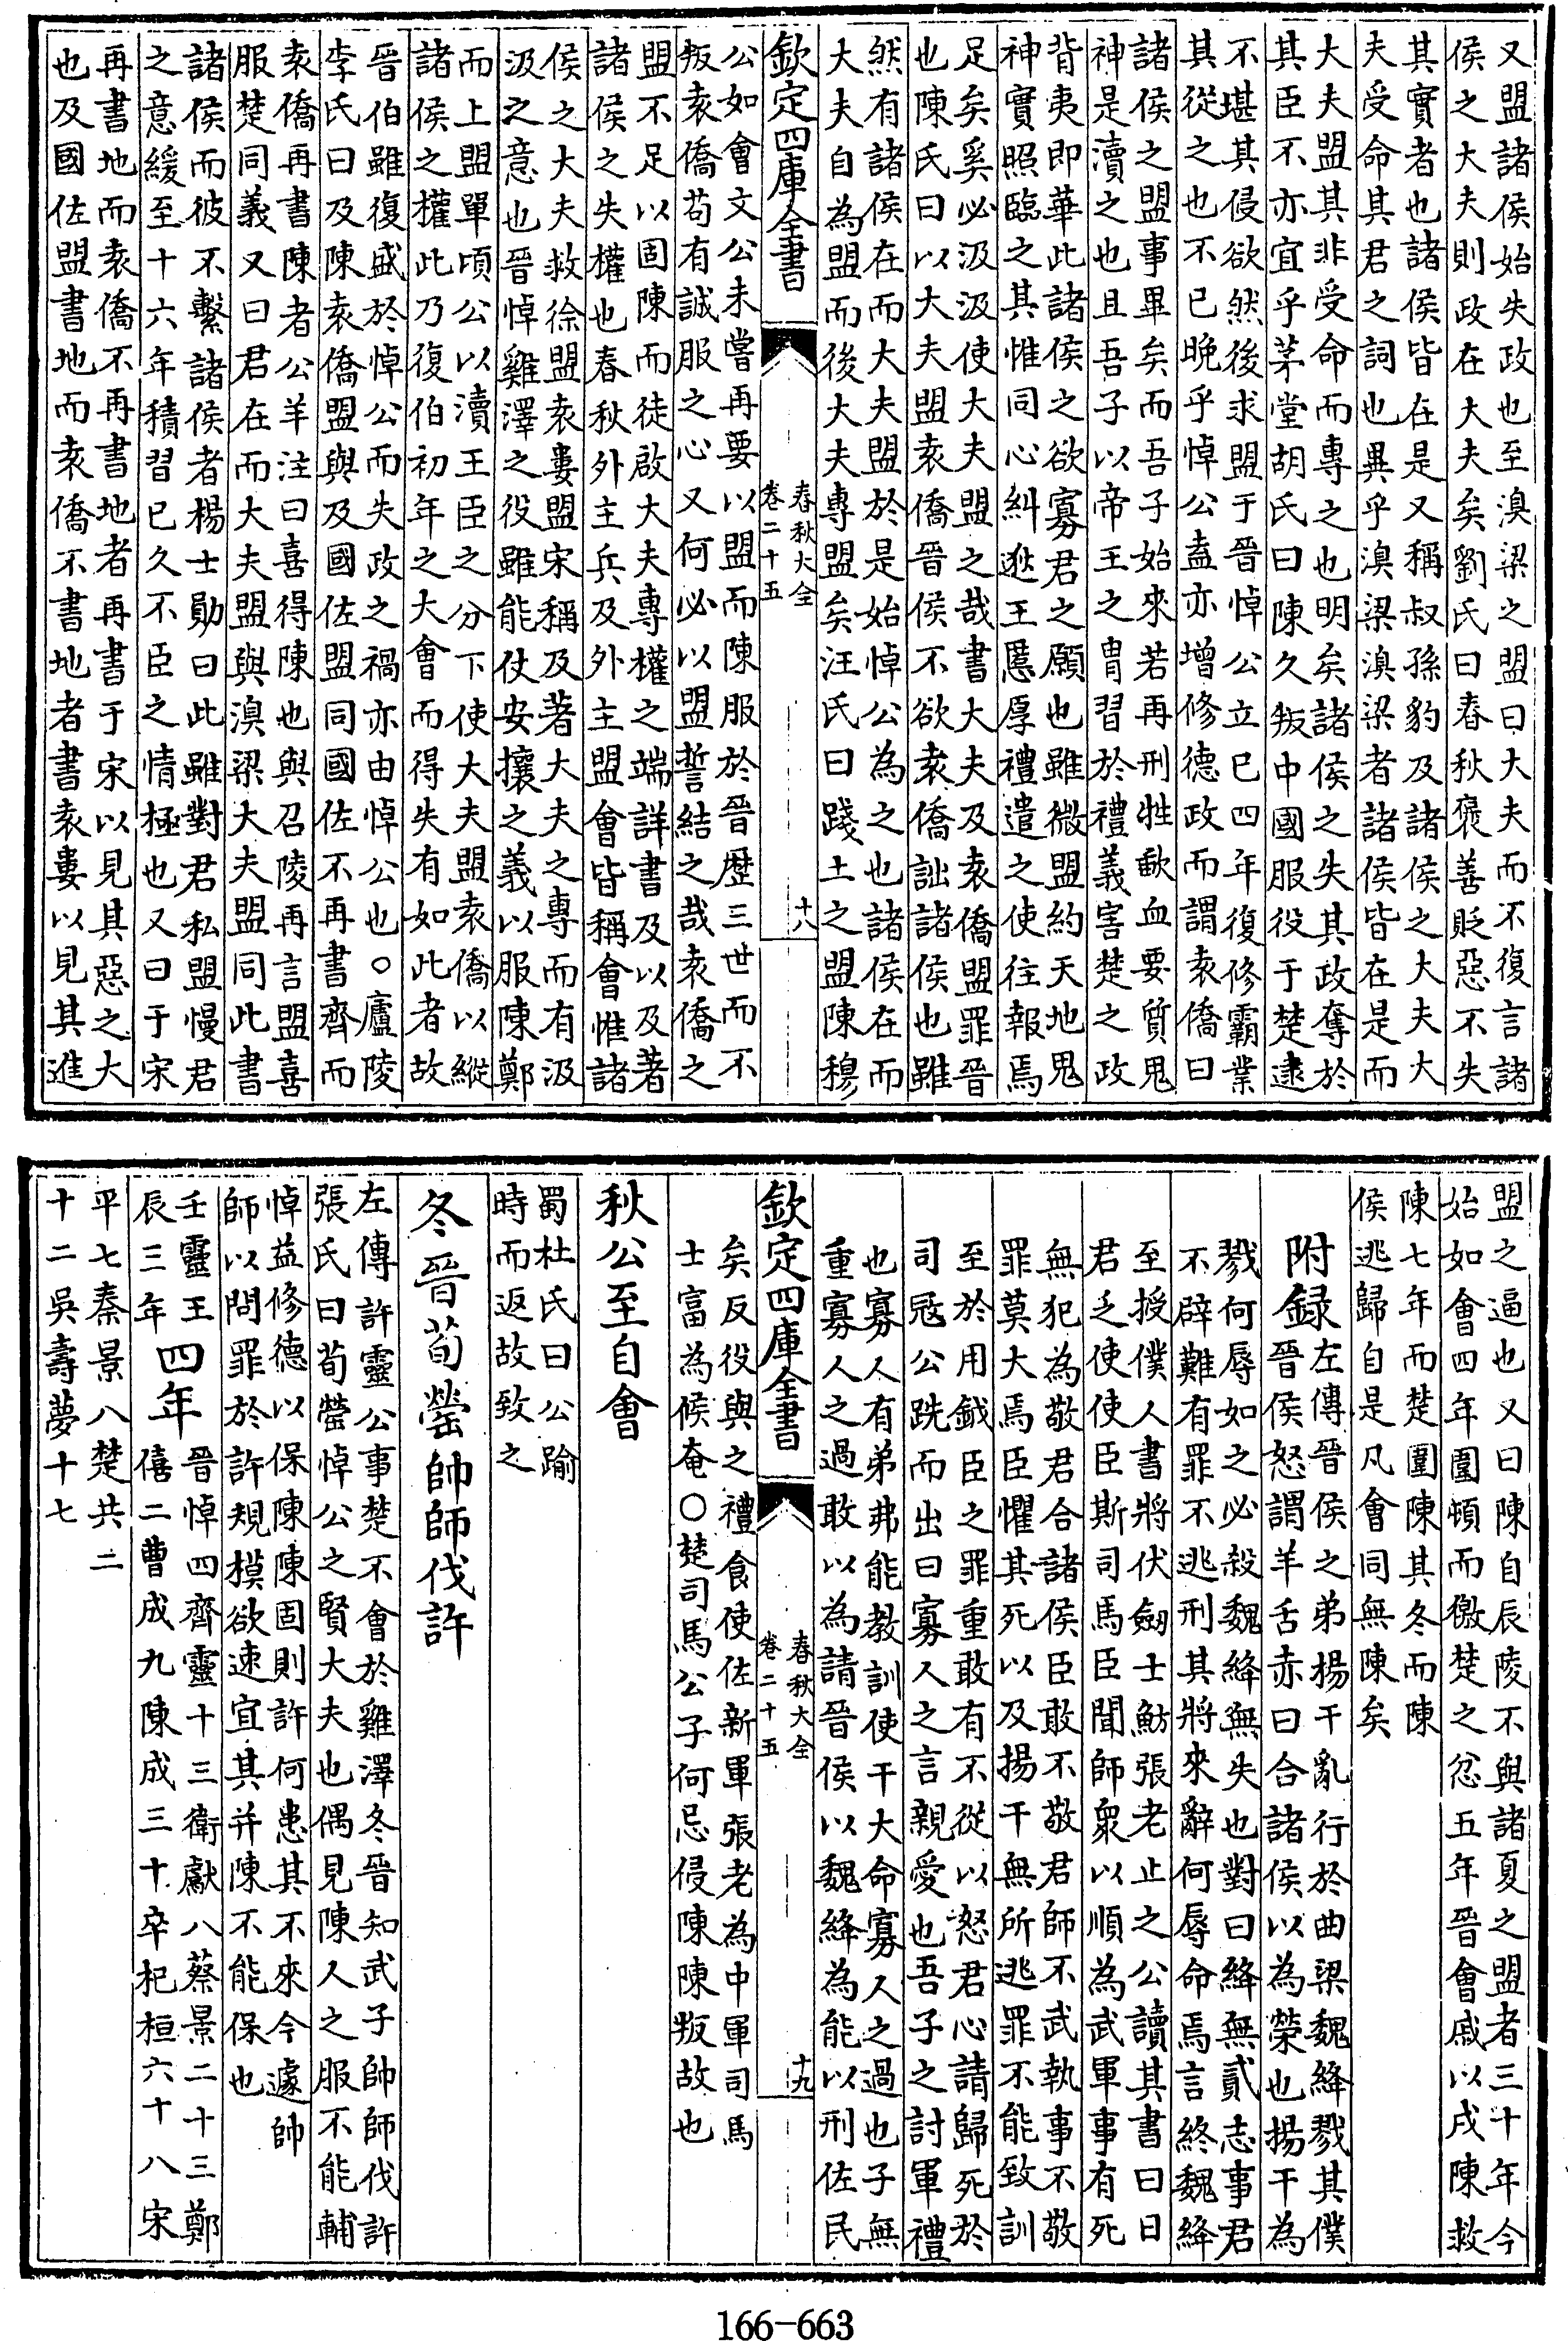 又盟諸侯始失政也至溴梁之盟曰大夫而不復言諸
侯之大夫則政在大夫矣劉氏曰春秋褒善貶惡不失
其實者也諸侯皆在是又稱叔孫豹及諸侯之大夫大
夫受命其君之詞也異乎溴梁溴梁者諸侯皆在是而
大夫盟其非受命而專之也明矣諸侯之失其政奪於
其臣不亦宜乎茅堂胡氏曰陳久叛中國服役于楚逮
不堪其侵欲然後求盟于晉悼公立已四年復修霸業
其從之也不已晚乎悼公盍亦增修德政而謂袁僑曰
諸侯之盟事畢矣而吾子始來若再刑牲歃血要質鬼
神是瀆之也且吾子以帝王之胄習於禮義害楚之政
背夷即華此諸侯之欲寡君之願也雖微盟約天地鬼
神實照臨之其惟同心糾逖王慝厚禮遣之使往報焉
足矣奚必汲汲使大夫盟之哉書大夫及袁僑盟罪晉
也陳氏曰以大夫盟袁僑晉侯不欲袁僑詘諸侯也雖
然有諸侯在而大夫盟於是始悼公為之也諸侯在而
大夫自為盟而後大夫專盟矣汪氏曰踐土之盟陳穆
欽定四庫全書
春秋大全
卷二十五
十八
公如會文公未嘗再要以盟而陳服於晉歷三世而不
叛袁僑苟有誠服之心又何必以盟誓結之哉袁僑之
盟不足以固陳而徒啟大夫專權之端詳書及以及著
諸侯之失權也春秋外主兵及外主盟會皆稱會惟諸
侯之大夫救徐盟袁婁盟宋稱及著大夫之專而有汲
汲之意也晉悼雞澤之役雖能仗安攘之義以服陳鄭
而上盟單頃公以瀆王臣之分下使大夫盟袁僑以縱
諸侯之權此乃復伯初年之大會而得失有如此者故
晉伯雖復盛於悼公而失政之禍亦由悼公也○廬陵
李氏曰及陳袁僑盟與及國佐盟同國佐不再書齊而
袁僑再書陳者公羊注曰喜得陳也與召陵再言盟喜
服楚同義又曰君在而大夫盟與溴梁大夫盟同此書
諸侯而彼不繫諸侯者楊士勛曰此雖對君私盟慢君
之意緩至十六年積習已久不臣之情極也又曰于宋
再書地而袁僑不再書地者再書于宋以見其惡之大
也及國佐盟書地而袁僑不書地者書袁婁以見其進
盟之逼也又曰陳自辰陵不與諸夏之盟者三十年今
始如會四年圍頓而儌楚之忿五年晉會戚以戍陳救
陳七年而楚圍陳其冬而陳
侯逃歸自是凡會同無陳矣
附録左傳晉侯之弟楊干亂行於曲梁魏絳戮其僕
晉侯怒謂羊舌赤曰合諸侯以為榮也揚干為
戮何辱如之必殺魏絳無失也對曰絳無貳志事君
不辟難有罪不逃刑其將來辭何辱命焉言終魏絳
至授僕人書將伏劒士魴張老止之公讀其書曰日
君乏使使臣斯司馬臣聞師衆以順為武軍事有死
無犯為敬君合諸侯臣敢不敬君師不武執事不敬
罪莫大焉臣懼其死以及揚干無所逃罪不能致訓
至於用鉞臣之罪重敢有不從以怒君心請歸死於
司冦公跣而出曰寡人之言親愛也吾子之討軍禮
也寡人有弟弗能教訓使干大命寡人之過也子無
重寡人之過敢以為請晉侯以魏絳為能以刑佐民
欽定四庫全書
春秋大全
卷二十五
十九
矣反役與之禮食使佐新軍張老為中軍司馬
士富為候奄○楚司馬公子何忌侵陳陳叛故也
秋公至自會
蜀杜氏曰公踰
時而返故致之
冬晉荀罃帥師伐許
左傳許靈公事楚不會於雞澤冬晉知武子帥師伐許
張氏曰荀罃悼公之賢大夫也偶見陳人之服不能輔
悼益修德以保陳陳固則許何患其不來今遽帥
師以問罪於許規模欲速宜其并陳不能保也
壬靈王四年晉悼四齊靈十三衛獻八蔡景二十三鄭
辰三年僖二曹成九陳成三十卒杞桓六十八宋
平七秦景八楚共二
十二吳壽夢十七
166-663